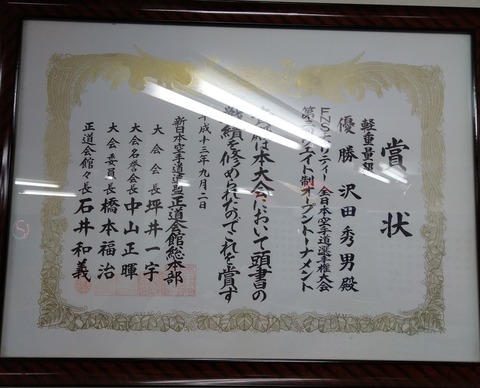 賞状
軽重量級
優勝 沢田秀男殿
全日本空手道選手権大会
ウェイト制オープントーナメント
は本大会において頭書の
戦績を修められたのでこれを賞す
平成十三年九月二日
新日本空手道連盟正道会館総本部
大会会長坪井一宇
大会名誉会長中山正暉
大会委員長橋本福治
正道会館々長石井和義